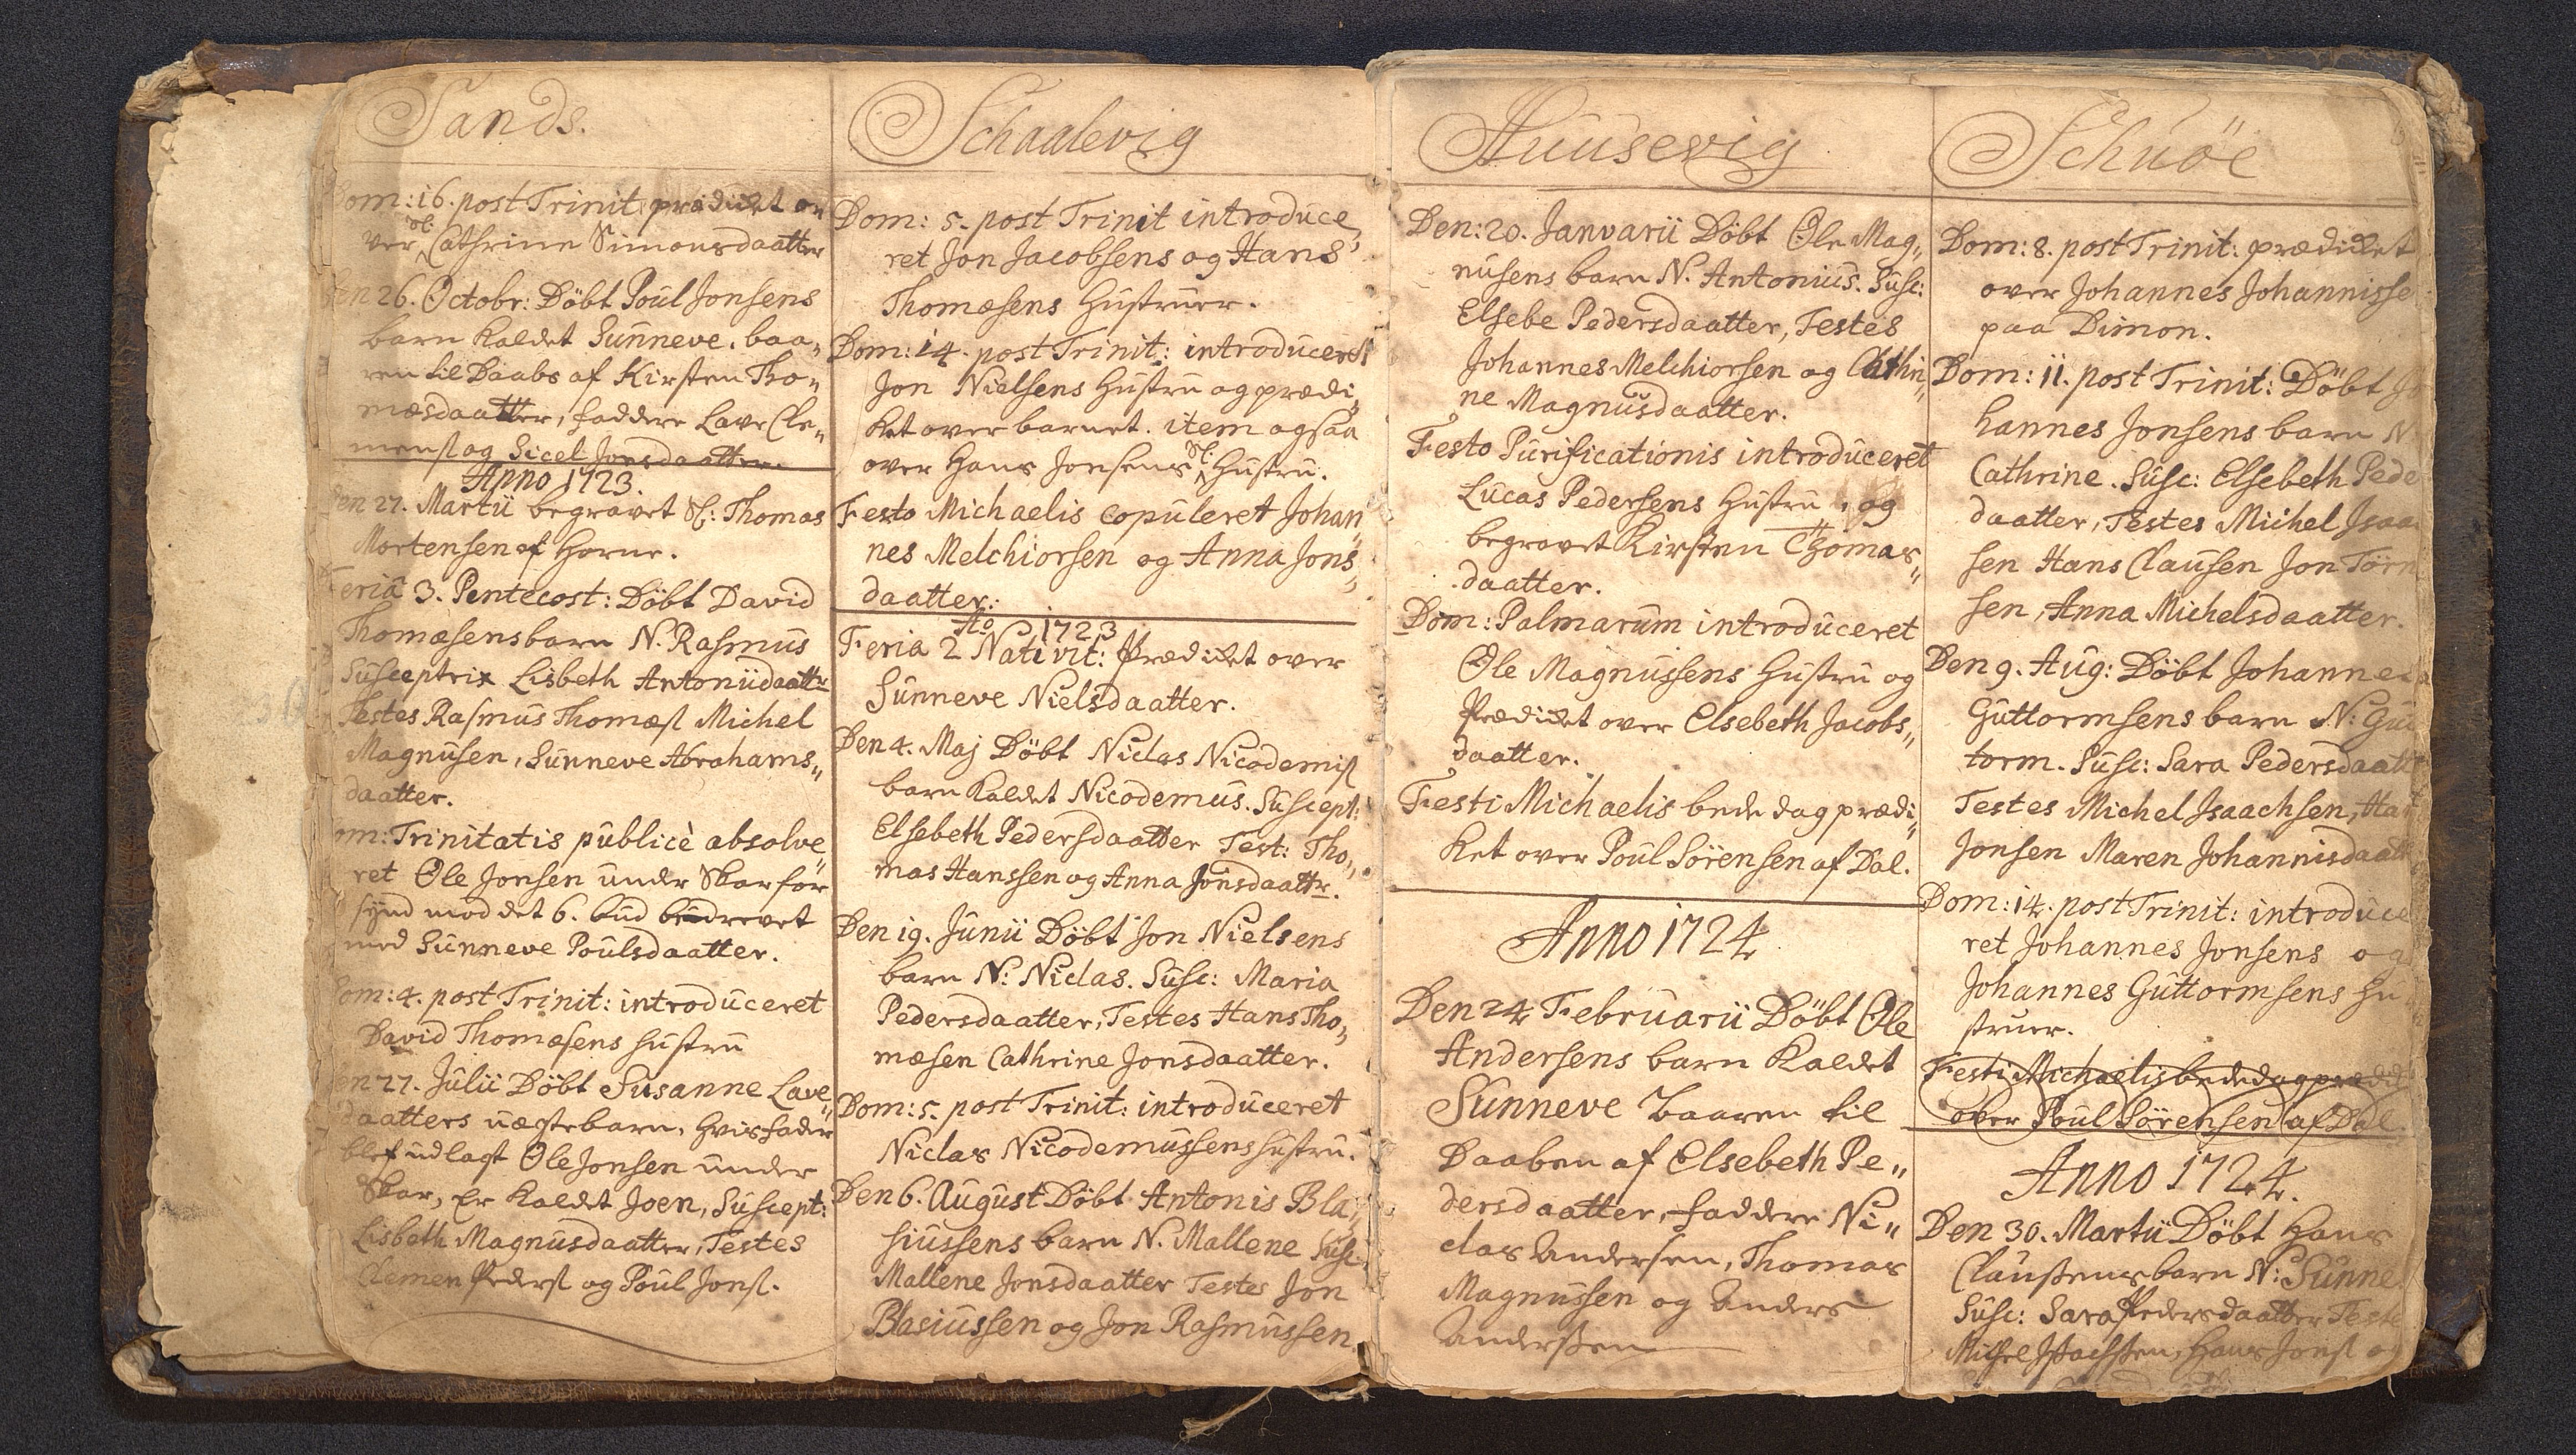 Sands.
Dom: 16. post Trinit prædicket o„
ver Sl: Cathrine Simonsdaatter
Den 26. Octobr: Döbt Poul Jonsens
barn kaldet Sunneve. baa„
ren til Daabs af Kirsten Tho„
mæsdaatter, faddere Lave Cle„
mens. og Sicel Jonsdaatter.
Anno 1723.
Den 27. Martii begravet Sl: Thomas
Mortensen af Horne.
Feria 3. Pentecost: Döbt David
Thomæsens barn N. Rasmus
Susceptrix Lisbeth Antoniidaattr
Testes Rasmus Thomæs. Michel
Magnusen, Sunneve Abrahams„
daatter.
Dom: Trinitatis publicè absolve„
ret Ole Jonsen under Skar for
synd mod det 6. bud bedrevet
med Sunneve Poulsdaatter.
Dom: 4. post Trinit: introduceret
David Thomæsens hustru
Den 27. Julii Döbt Susanne Lave„
daatters uægte barn, hvis fader
blef udlagt Ole Jonsen under
Skar, er kaldet Joen, Suscept:
Lisbeth Magnusdaatter, Testes
Clemen Peders. og Poul Jons.
Schaalevig
Dom: 5. post Trinit introduce„
ret Jon Jacobsens og Hans
Thomæsens hustruer.
Dom: 14. post Trinit: introduceret
Jon Nielsens hustru og prædi„
ket over barnet. item ogsaa
over Hans Jonsens Sl: hustru.
Festo Michaelis copuleret Johan„
nes Melchiorsen og Anna Jons„
daatter.
Ao 1723
Feria 2 Nativit: Prædicket over
Sunneve Nielsdaatter.
Den 4. Maj Döbt Niclas Nicodemis.
barn kaldet Nicodemus. Suscept:
Elsebeth Pedersdaatter Test: Tho„
mas Hanssen og Anna Jonsdaattr.
Den 19. Junii Döbt Jon Nielsens
barn N: Niclas. Susc: Maria
Pedersdaatter, Testes Hans Tho„
mæsen Cathrine Jonsdaatter.
Dom: 5. post Trinit: introduceret
Niclas Nicodemussens hustru.
Den 6. August Döbt Antonis Bla„
siussens barn N. Mallene Susc:
Mallene Jonsdaatter Testes Jon
Blasiussen og Jon Rasmussen.
Huusevig
Den: 20. Janvarii Döbt Ole Mag„
nusens barn N. Antonius. Susc:
Elsebe Pedersdaatter, Testes
Johannes Melchiorsen og Cathri„
ne Magnusdaatter.
Festo Purificationis introduceret
Lucas Pedersens hustru, og
begravet Kirsten Thomas„
daatter.
Dom: Palmarum introduceret
Ole Magnussens hustru og
Prædicket over Elsebeth Jacobs„
daatter.
Festi Michaelis bededag prædi„
ket over Poul Sörensen af Dal.
Anno 1724
Den 24 Februarii Döbt Ole
Andersens barn kaldet
Sunneve baaren til
Daaben af Elsebeth Pe„
dersdaatter, faddere Ni„
clas Andersen, Thomas
Magnussen og Anders
Anderssen
Schuöe
Dom: 8. post Trinit: prædicket
over Johannes Johannisse
paa Dimon.
Dom: 11. post Trinit: Döbt Jo
hannes Jonsens barn N
Cathrine. Susc: Elsebeth Pede
daatter, Testes Michel Isaa
sen Hans Clausen Jon Törn
sen, Anna Michelsdaatter.
Den 9. Aug: Döbt Johannes
Guttormsens barn N: Gut
torm. Susc: Sara Pedersdaatt
Testes Michel Isaachsen, Han
Jonsen Maren Johannisdaatt
Dom: 14. post Trinit: introduce
ret Johannes Jonsens og
Johannes Guttormsens hu
struer.
Festi Michaelis bededag prædik
over Poul Sörensen af Dal.
Anno 1724.
Den 30. Martii Döbt Hans
Claussens barn N: Sunne
Susc: Sara Pedersdaatter Teste
Michel Isachsen, Hans Jons. og